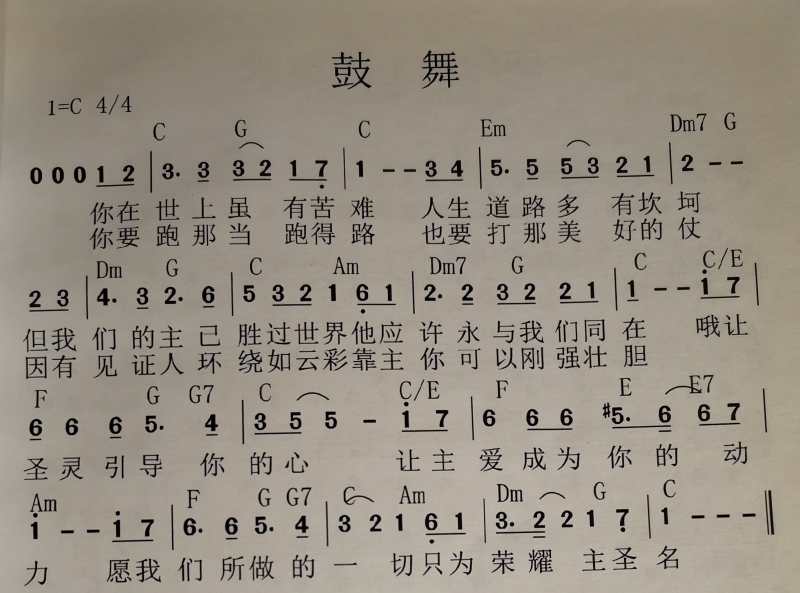 鼓 舞
1=C 4/4
C G C Em Dm7 G
0 0 0 1 2 | 3. 3 3 2 1 7 | 1 - - 3 4 | 5. 5 5 3 2 1 | 2 - -
你在 世 上 虽 有苦 难 人生 道 路 多 有坎 坷
你要 跑 那 当 跑得 路 也要 打 那 美 好的 仗
Dm G C Am Dm7 G C C/E
2 3 | 4. 3 2. 6 | 5 3 2 1 6 1 | 2. 2 3 2 2 1 | 1 - - 1 7 |
但我 们 的 主 已 胜过世界他应 许 永 与我 们同 在 哦让
因有 见 证人 环 绕如云彩靠主 你 可 以刚 强壮 胆
F G G7 C C/E F E E7
6 6 6 5. 4 | 3 5 5 - 1 7 | 6 6 6 #5. 6 6 7 |
圣 灵 引 导 你 的 心 让 主 爱 成 为 你 的 动
Am F G G7 C Am Dm G C
1 - - 1 7 | 6. 6 5. 4 | 3 2 1 6 1 | 3. 2 2 1 7 | 1 - - - ‖
力 愿我 们 所 做 的 一 切 只为 荣 耀 主 圣 名